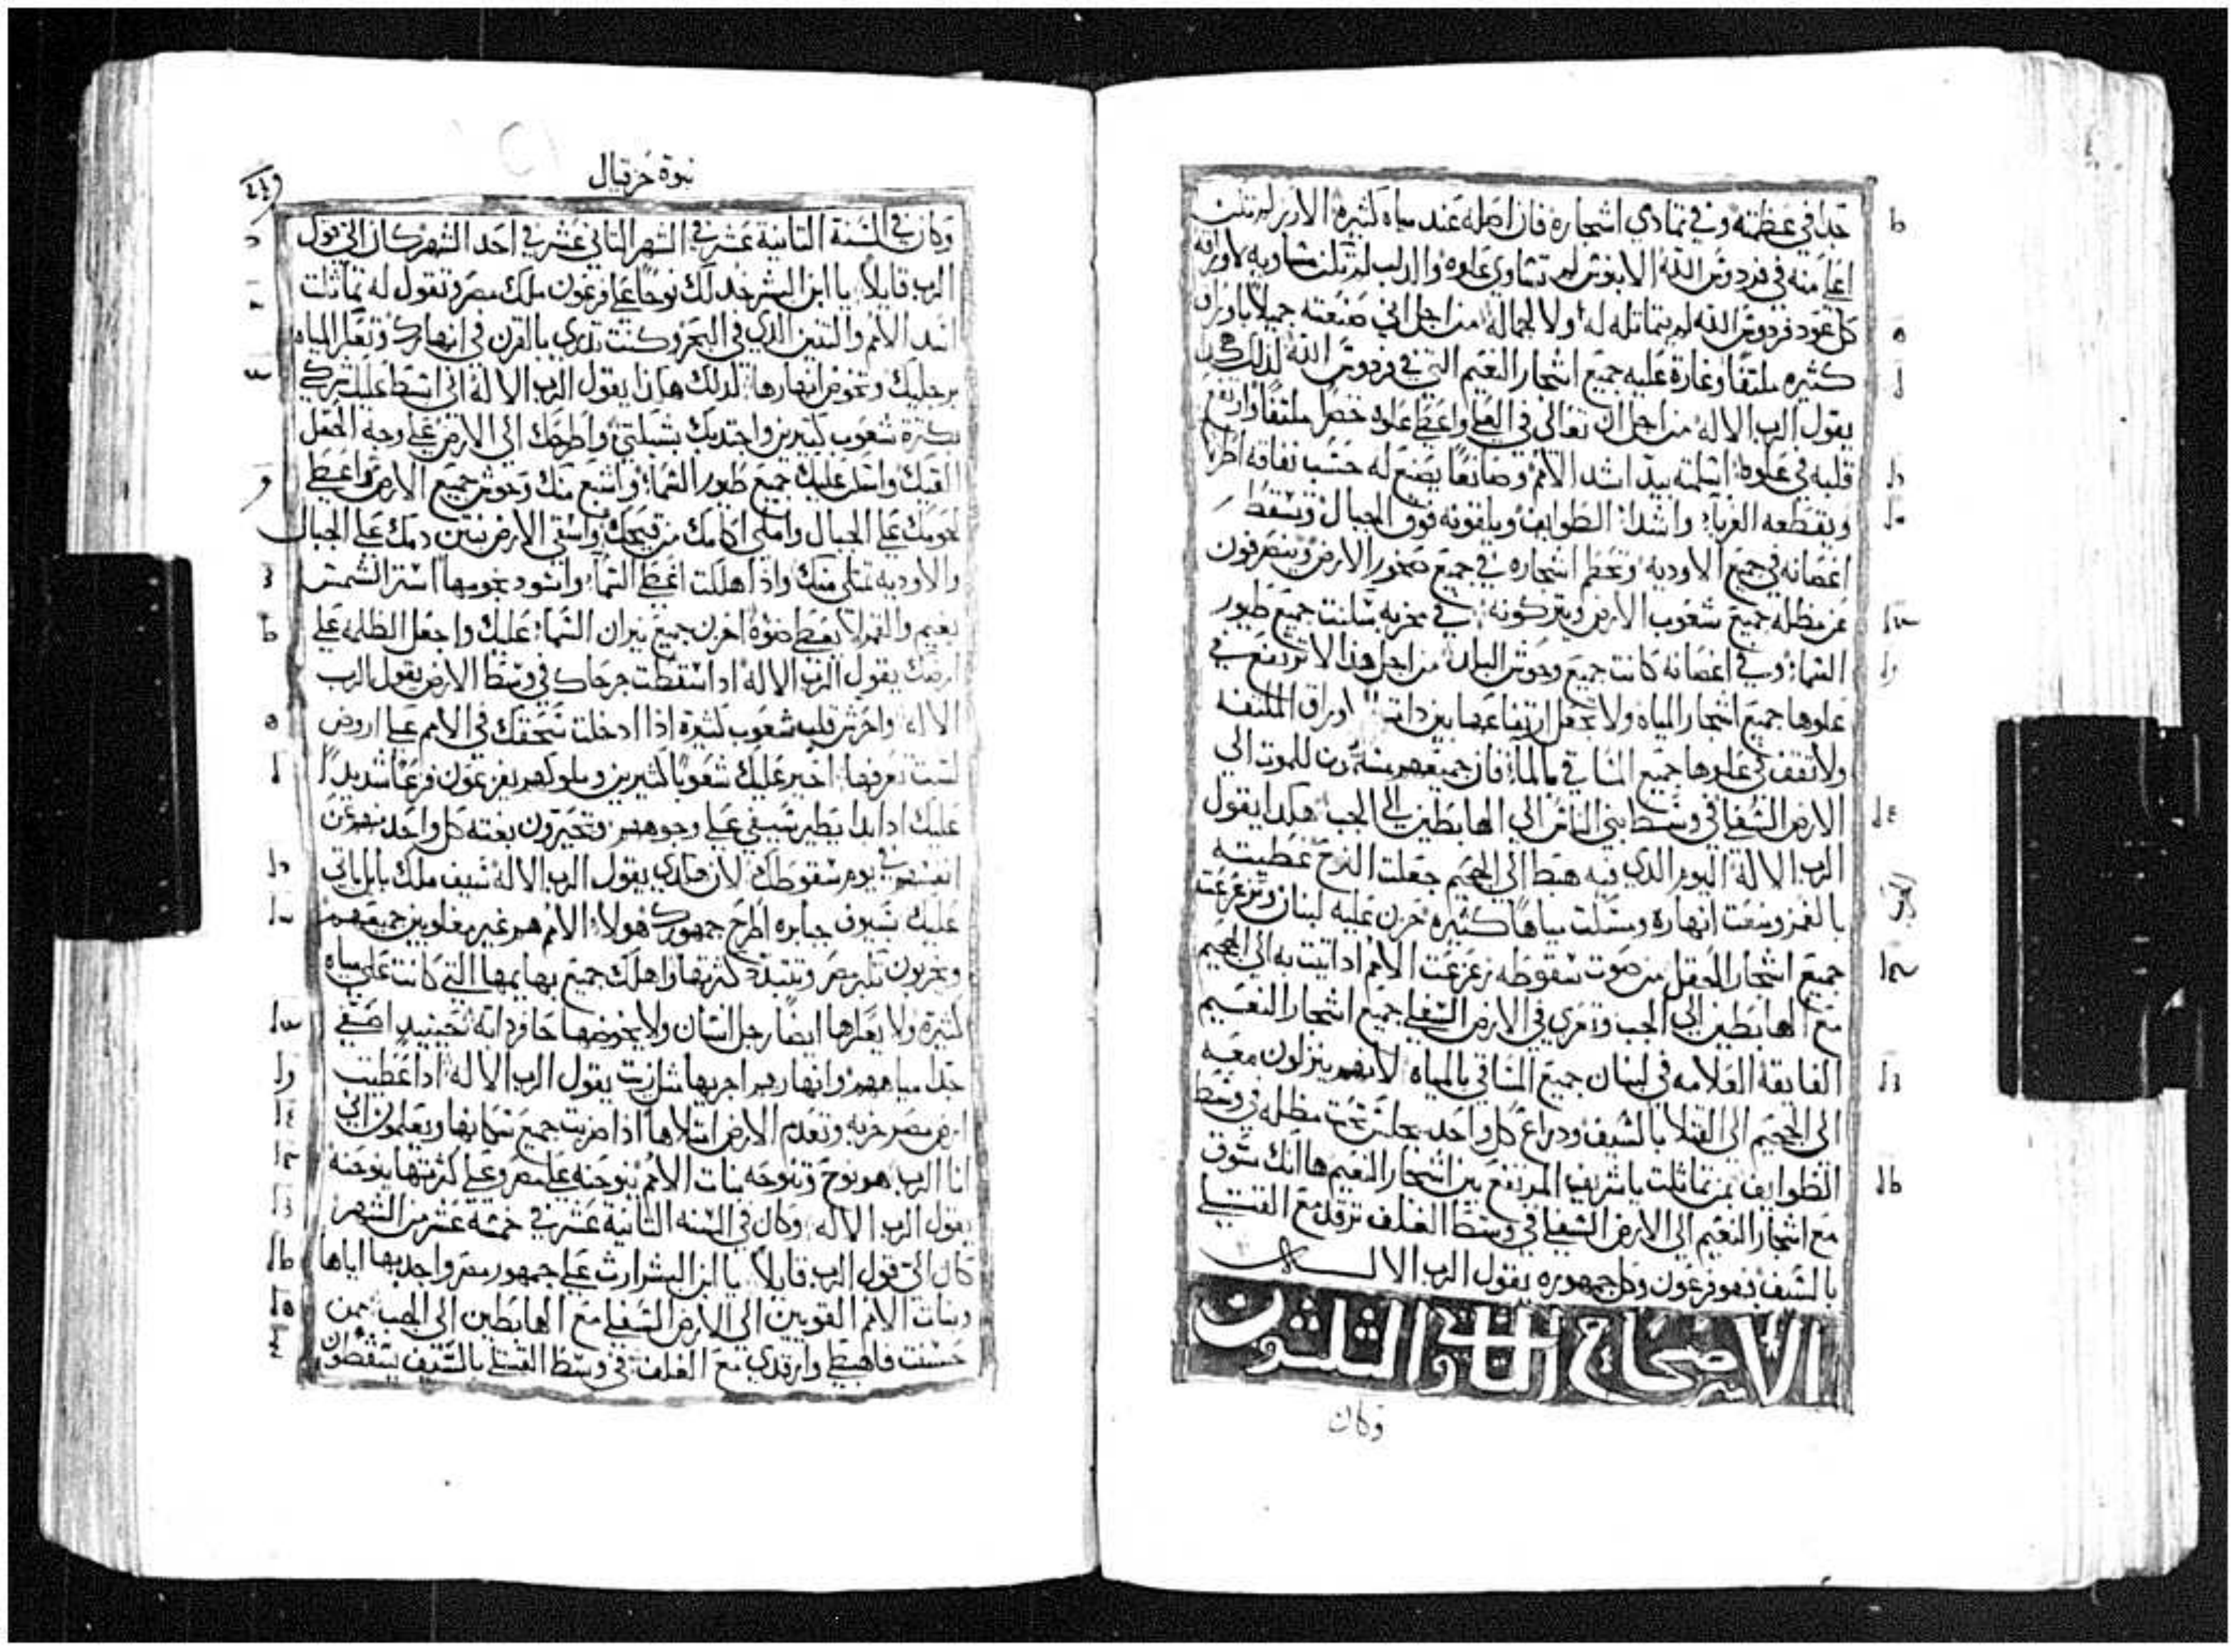 جدا في عظمته وفي تمادي اشجاره فان اصله عند مياه كثيرة الارز لم تكن
اعلا منه في فردوس الله الابنوس لم تساوي علوه والدلب لم تكن مساويه لاوراقه
كل عود فردوس الله لم يتماثله له ولا لجماله من اجل اني صنعته جميلا باوراق
كثيره ملتفا وغارة عليه جميع اشجار النعيم التي في فردوس الله لذلك هكذا
يقول الرب الاله من اجل ان تعالى في العلو واعطى علوه خضرا ملتفا وارتفع
قلبه في علوه اسلمته بيد اشد الامم وصانعا يصنع له حسب نفاقه اطرد
وتقطعه الغربآ واشدا الطوايف ويلقونه فوق الجبال وتسقط
اغصانه في جميع الاودية وتحطم اشجاره في جميع صخور الارض وينصرفون
عن مظله جميع شعوب الارض ويتركونه في خربه سكنت جميع طيور
السمآ وفي اغصانه كانت جميع وحوش البلد من اجل هذا لا ترتفع في
علوها جميع اشجار المياه ولا تجعل ارتفاعها بين اوراق الملتفه
ولا تقف في علوها جميع المساقي بالمآ فان جميعهم للموت الى
الارض السفلى في وسط بني الناس الى الهابطين الى الجب هكذا يقول
الرب الاله اليوم الذي فيه هبط الى الجحيم جعلت النوح غطيته
بالغمر ومنعت انهاره ومسكت مياها كثيره حزن عليه لبنان وتزعزعت
جميع اشجار الحقل من صوت سقوطه زعزعت الامم اذ اتيت به الى الجحيم
مع الهابطين الى الجب وتعزي في الارض السفلى جميع اشجار النعيم
الفايقة الفلامه في لبنان جميع المساقي بالمياه لانهم ينزلون معه
الى الجحيم الى القتلا بالسيف ودراع كل واحد يجلس تحت مظله في وسط
الطوايف بمن تماثلت يا شريف المرتفع بين اشجار النعيم ها انك تسوق
مع اشجار النعيم الى الارض السفلى في وسط الغلف ترقد مع القتلى
بالسيف فهو فرعون وكل جمهوره يقول الرب الاله
الاصحاح الثاني والثلثون
وكان
نبوة حزقيال
وكان في السنة الثانية عشر في الشهر الثاني عشر في احد الشهر كان الي قول
الرب قايلا يا ابن البشر خد لك نوحا على فرعون ملك مصر وتقول له تماثلت
اسد الامم والتنين الذي في البحر وكنت تدري بالقرن في انهارك وتعكر المياه
برجليك وتخوض انهارها لذلك هذا يقول الرب الاله اني ابسط عليك شركي
بكثرة شعوب كثيرين واجتدبك بشبكتي واطرحك الى الارض على وجه الحقل
القيك واسكن عليك جميع طيور السمآ واشبع منك وحوش جميع الارض واعطي
لحومك على الجبال واملي اكامك من قيحك واسقي الارض بنتن دمك على الجبال
والاوديه تمتلي منك واذا هلكت اغطي السمآ واسود نجومها استر الشمس
بغيم والقمر لا يعطي ضوه احزن جميع نيران السمآ عليك واجعل الظلمه على
ارضك يقول الرب الاله اذا سقطت جرحاك في وسط الارض يقول الرب
الاله واحزن قلب شعوب كثيرة اذا ادخلت سحقك في الامم على اروض
لست تعرفها احير عليك شعوبا كثيرين وملوكهم يفزعون فزعا شديدا
عليك اذا بدا يطير سيفي على وجوههم وتحيرون بغته كل واحد من
انفسهم في يوم سقوطك لان هكذي يقول الرب الاله سيف ملك بابل ياتي
عليك بسيوف جبابره اطرح جمهورك هولا الامم هم غير مغلوبين جميعهم
ويخربون تكبر مصر وتتبدد كثرتها واهلك جميع بهايمها التي كانت على مياه
كثيرة ولا يعكرها ايضا رجل انسان ولا يخوضها حافر دابة حينيد اصفي
جدا مياههم وانهارهم اجريها مثل زيت يقول الرب الاله اذا اعطيت
ارض مصر خربه وتعدم الارض امتلاها اذا ضربت جميع سكانها ويعلمون اني
انا الرب هو نوح وتنوحه بنات الامم تنوحنه على مصر وعلى كثرتها ينوحنه
يقول الرب الاله وكان في السنه الثانية عشر في خمسة عشر من الشهر
كان الي قول الرب قايلا يا ابن البشر ارث على جمهور مصر واجذبها اياها
وبنات الامم القويين الى الارض السفلى مع الهابطين الى الجب ممن
حسنت فاهبطي وارقدي مع الغلف في وسط القتلى بالسيف يسقطون